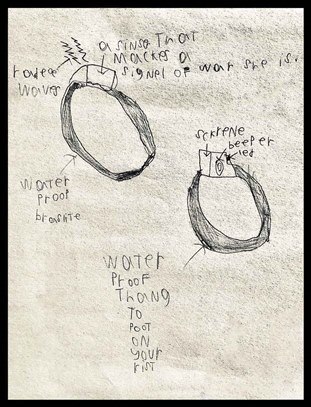 a sinsa That
mackes a
signel of war she is.
radea
waves
screne
beeper
led
water
proof
water
proof
Thang
To
poot
on
your
rist